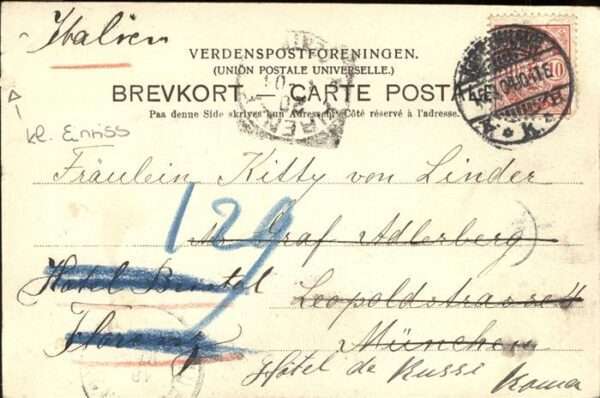 Italien
VERDENSPOSTFORENINGEN.
(UNION POSTALE UNIVERSELLE.)
BREVKORT — CARTE POSTA
Paa denne Side skrives kun Adressen. Côté réservé à l'adresse.
kl. Einriss
Fräulein Kitty von Linder
129
Graf Adlerberg
Hotel Bristol
Leopoldstrasse 4
Florenz
München
Hôtel de Russi Roma
10
K.